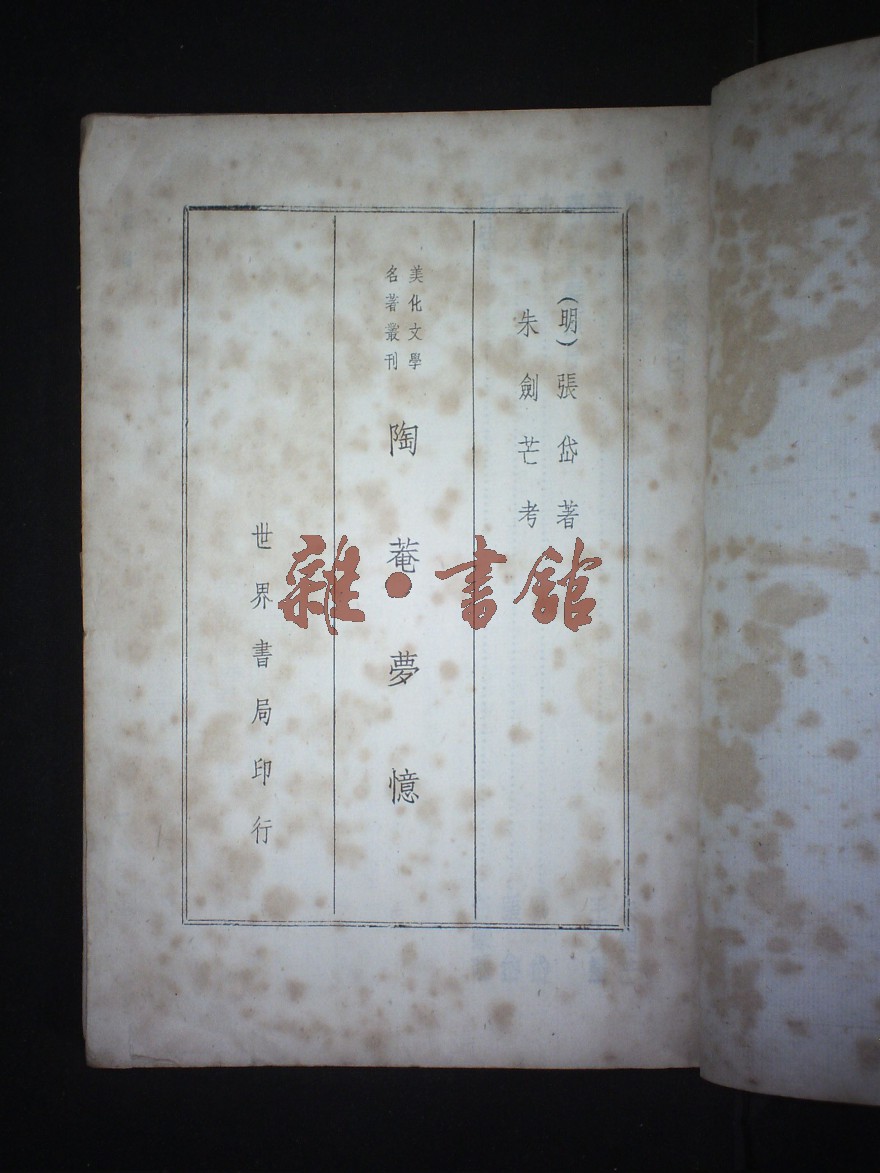 (明)張岱著
朱劍芒考
美化文學
名著叢刊
陶菴夢憶
世界書局印行
雜·書館